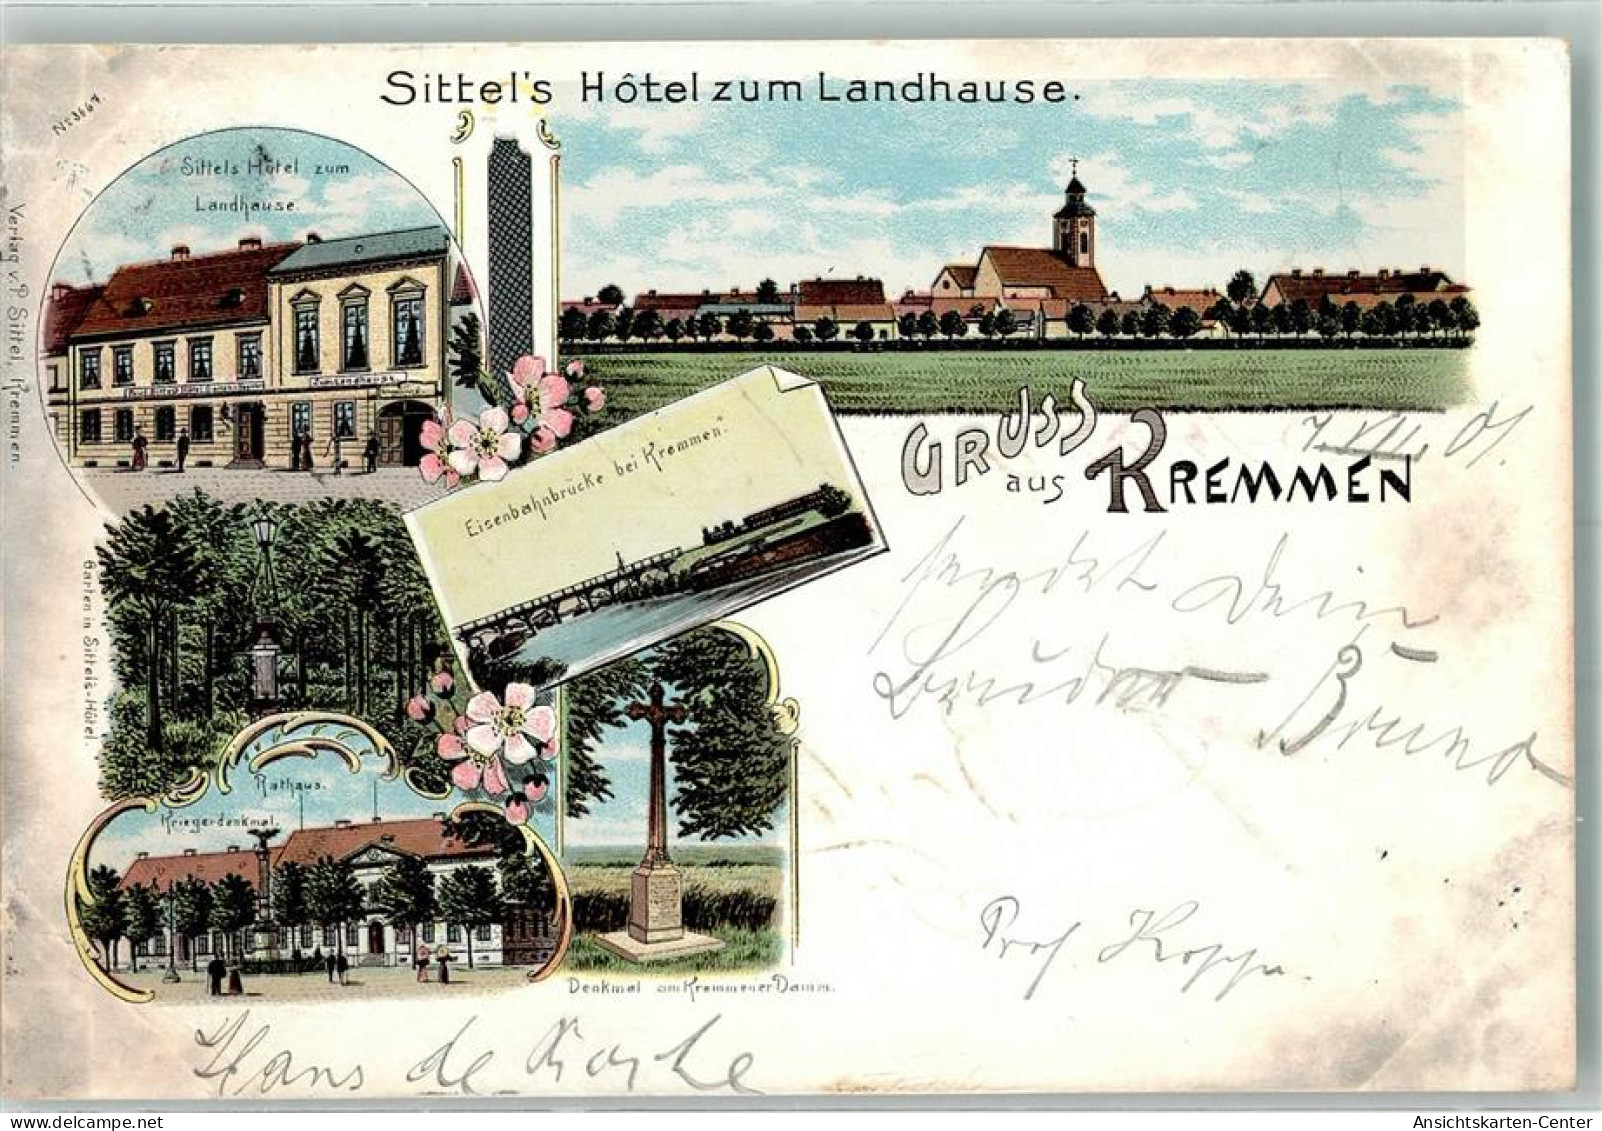 Sittel's Hôtel zum Landhause.
No 3667.
Sittels Hôtel zum
Landhause.
Zum Landhause
Verlag v. P. Sittel, Kremmen.
Eisenbahnbrücke bei Kremmen.
GRUSS
aus KREMMEN
7.VII.01.
sendet Dein
Bruder Bruno
Garten in Sittels-Hôtel.
Rathaus.
Kriegerdenkmal.
Denkmal am Kremmener Damm.
Prof. Koppe.
Hans de
Ansichtskarten-Center